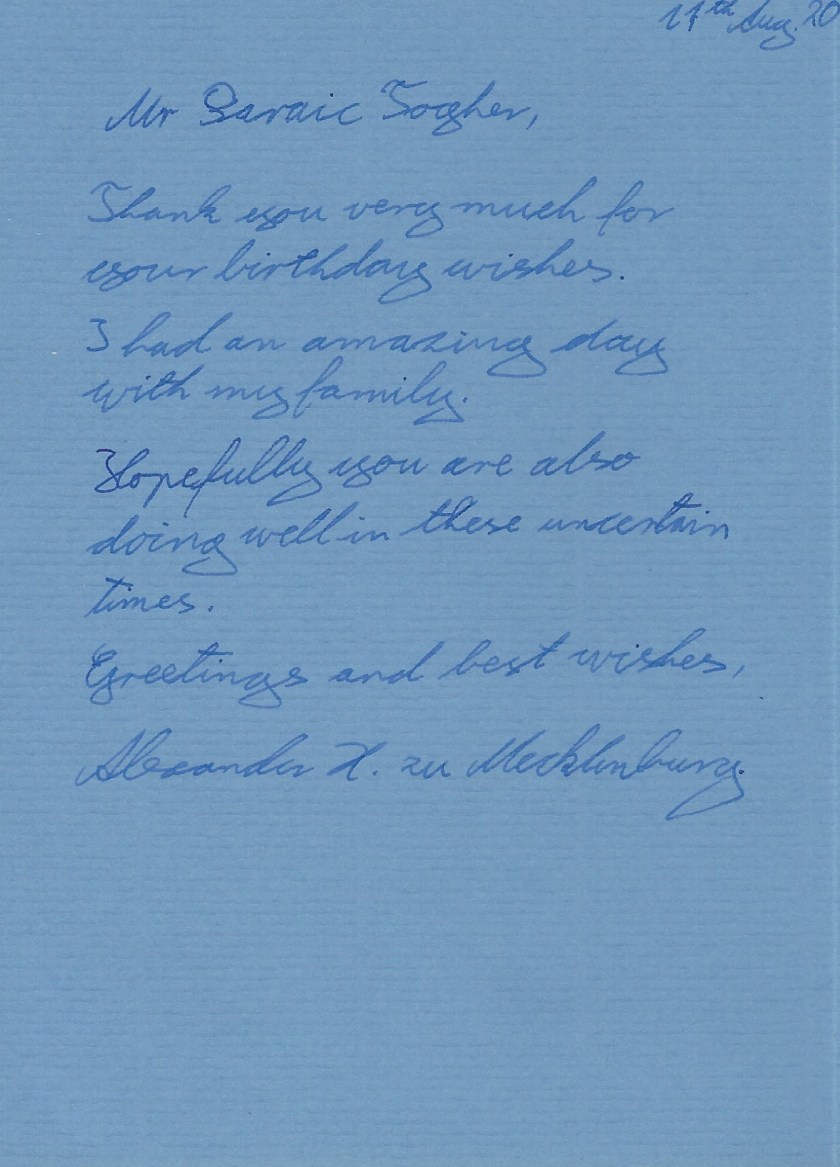 11th Aug. 20
Mr Saraic Togher,
Thank you very much for
your birthday wishes.
I had an amazing day
with my family.
Hopefully you are also
doing well in these uncertain
times.
Greetings and best wishes,
Alexander H. zu Mecklenburg.